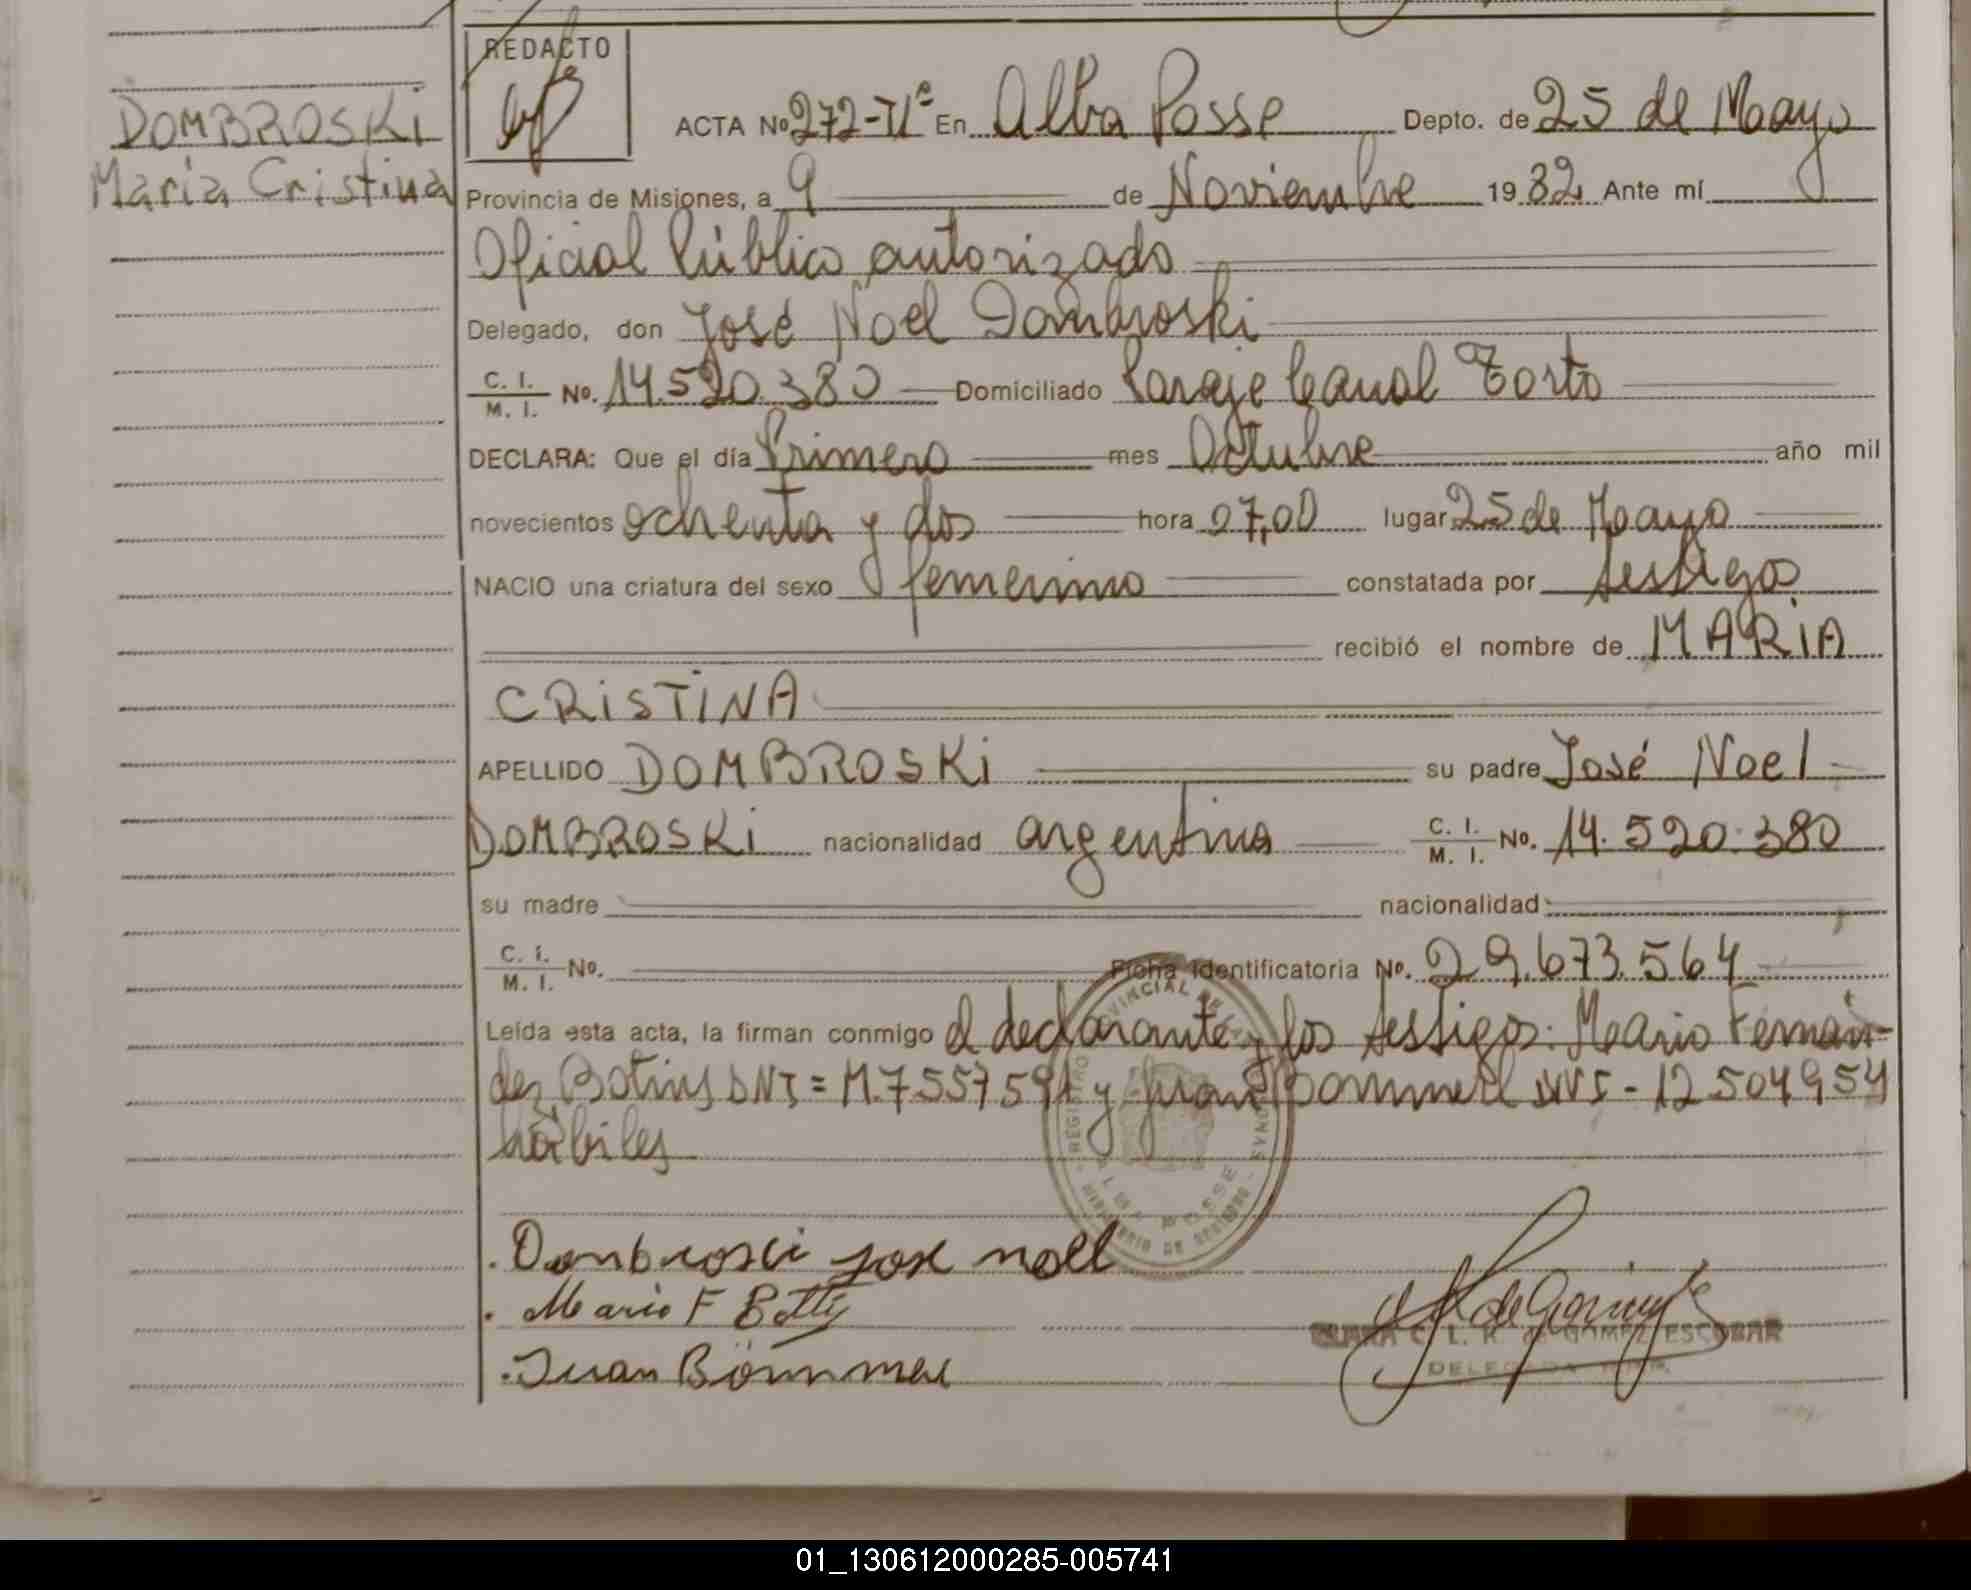 REDACTO
DOMBROSKI
María Cristina
ACTA No 272-Tº En Alba Posse Depto. de 25 de Mayo
Provincia de Misiones, a 9 de Noviembre 1982 Ante mí
Oficial Público autorizado
Delegado, don José Noel Dombroski
C. I. / M. I. No. 14.520.380 Domiciliado Paraje Canal Torto
DECLARA: Que el día Primero mes Octubre año mil
novecientos ochenta y dos hora 07,00 lugar 25 de Mayo
NACIO una criatura del sexo femenino constatada por testigos
recibió el nombre de MARIA
CRISTINA
APELLIDO DOMBROSKI su padre José Noel
DOMBROSKI nacionalidad argentina C. I. / M. I. No. 14.520.380
su madre nacionalidad
C. I. / M. I. No. Ficha identificatoria No. 29.673.564
Leída esta acta, la firman conmigo el declarante y los testigos: Mario Fernan-
dez DNI = M.7557591 y Juan Bommer DNI - 12504954
hábiles
Dombrosci Jose noel
Mario F
Juan Bömmer
C. L. R. de GOMEZ ESCOBAR
DELEGADA
01_130612000285-005741